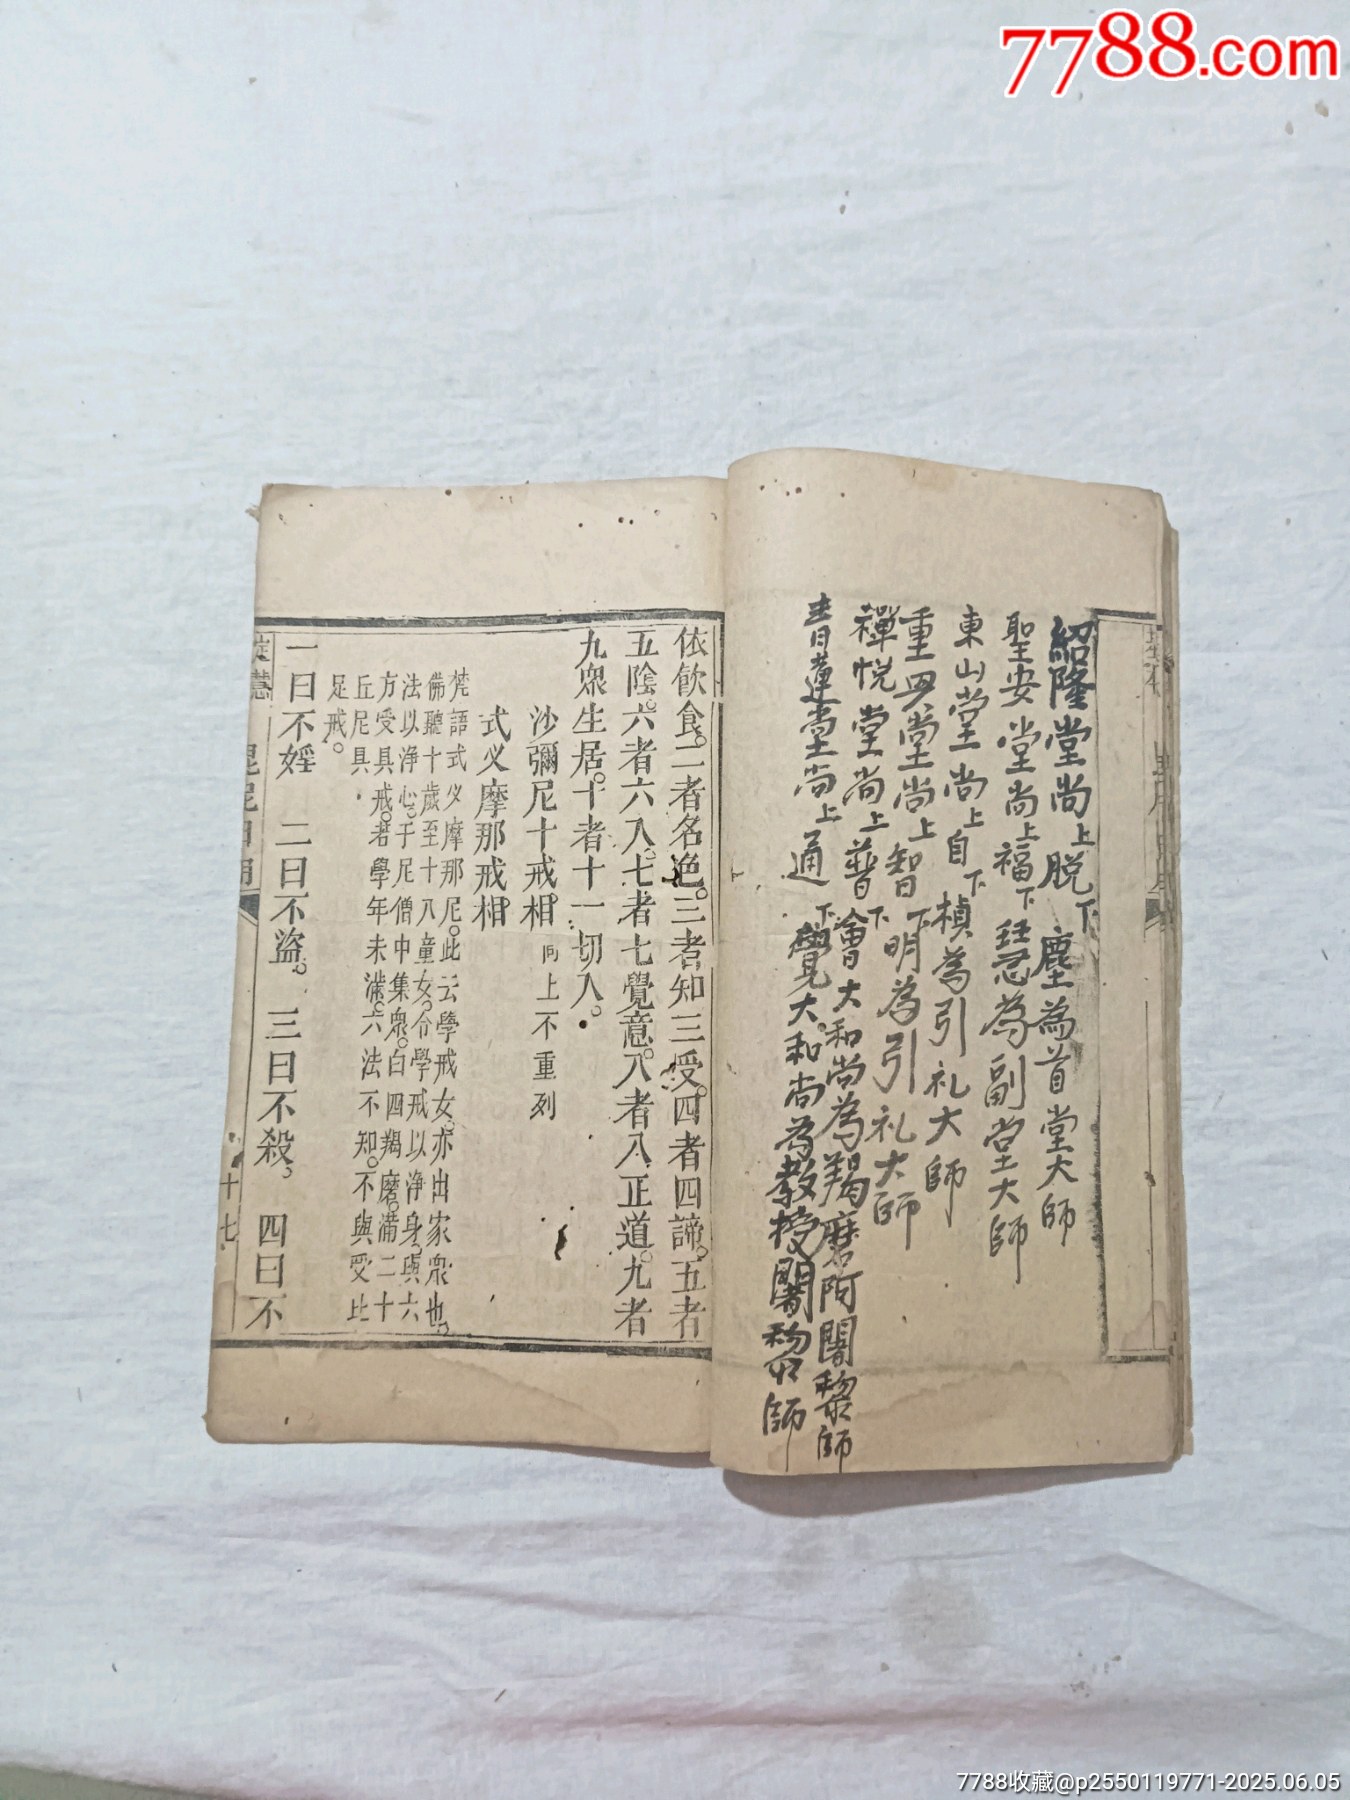 7788.com
紹隆堂尚上脱下塵為首堂大師
聖安堂尚上福下慧為副堂大師
東山堂尚上自下楨為引礼大師
重興堂尚上智下明為引礼大師
禪悦堂尚上普下會大和尚為羯磨阿闍黎師
青蓮堂尚上通下覺大和尚為教授闍黎師
依飲食。二者名色。三者知三受。四者四諦。五者
五陰。六者六入。七者七覺意。八者八正道。九者
九眾生居。十者十一切入。
沙彌尼十戒相。同上不重列
式乂摩那戒相。
梵語式乂摩那尼。此云學戒女。亦出家眾也。
佛聽十歲至十八童女。令學戒以淨身。與六
法以淨心。于尼僧中集眾。白四羯磨。滿二十
方受具戒。若學年未滿。六法不知。不與受比
丘尼具
足戒。
一曰不婬 二曰不盜。 三曰不殺。 四曰不
毘尼日用
十七
7788收藏@p2550119771-2025.06.05